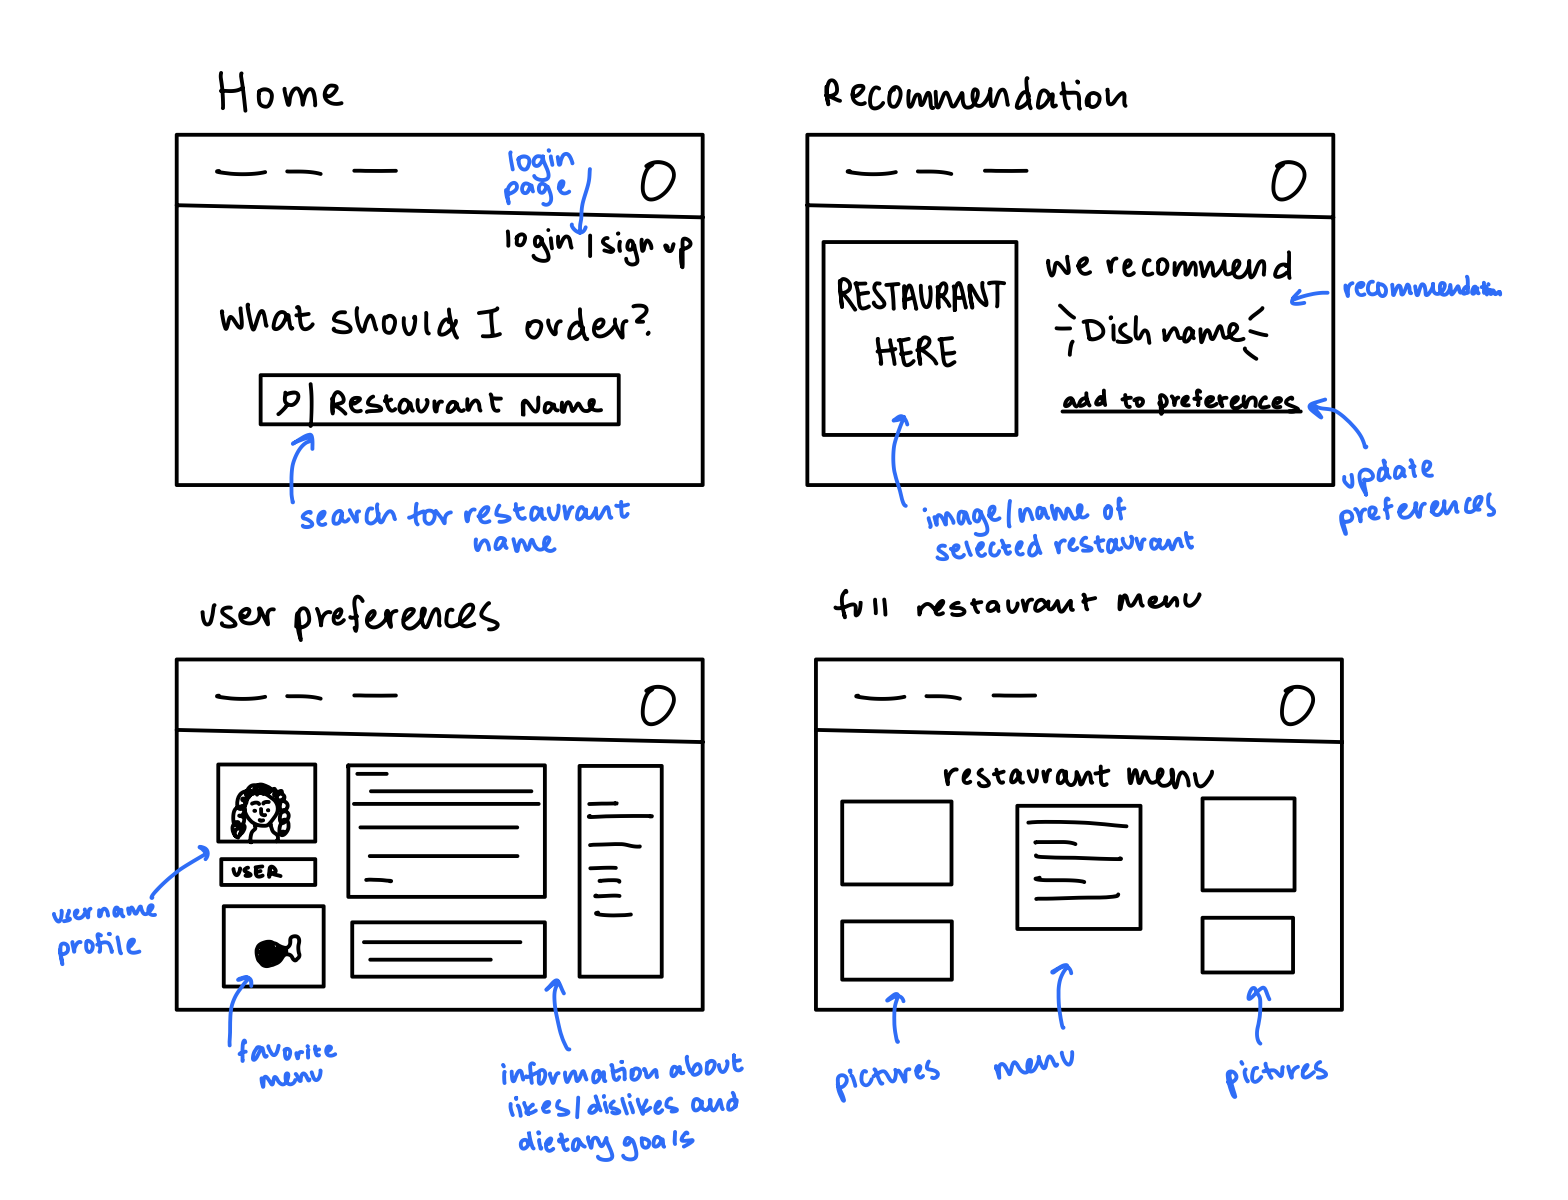 Home
login
page
login | sign up
what should I order?
Restaurant Name
search for restaurant
name
Recommendation
RESTAURANT
HERE
we recommend
Dish name
add to preferences
recommendation
update
preferences
image/name of
selected restaurant
user preferences
USER
username
profile
favorite
menu
information about
likes/dislikes and
dietary goals
full restaurant menu
restaurant menu
pictures
menu
pictures